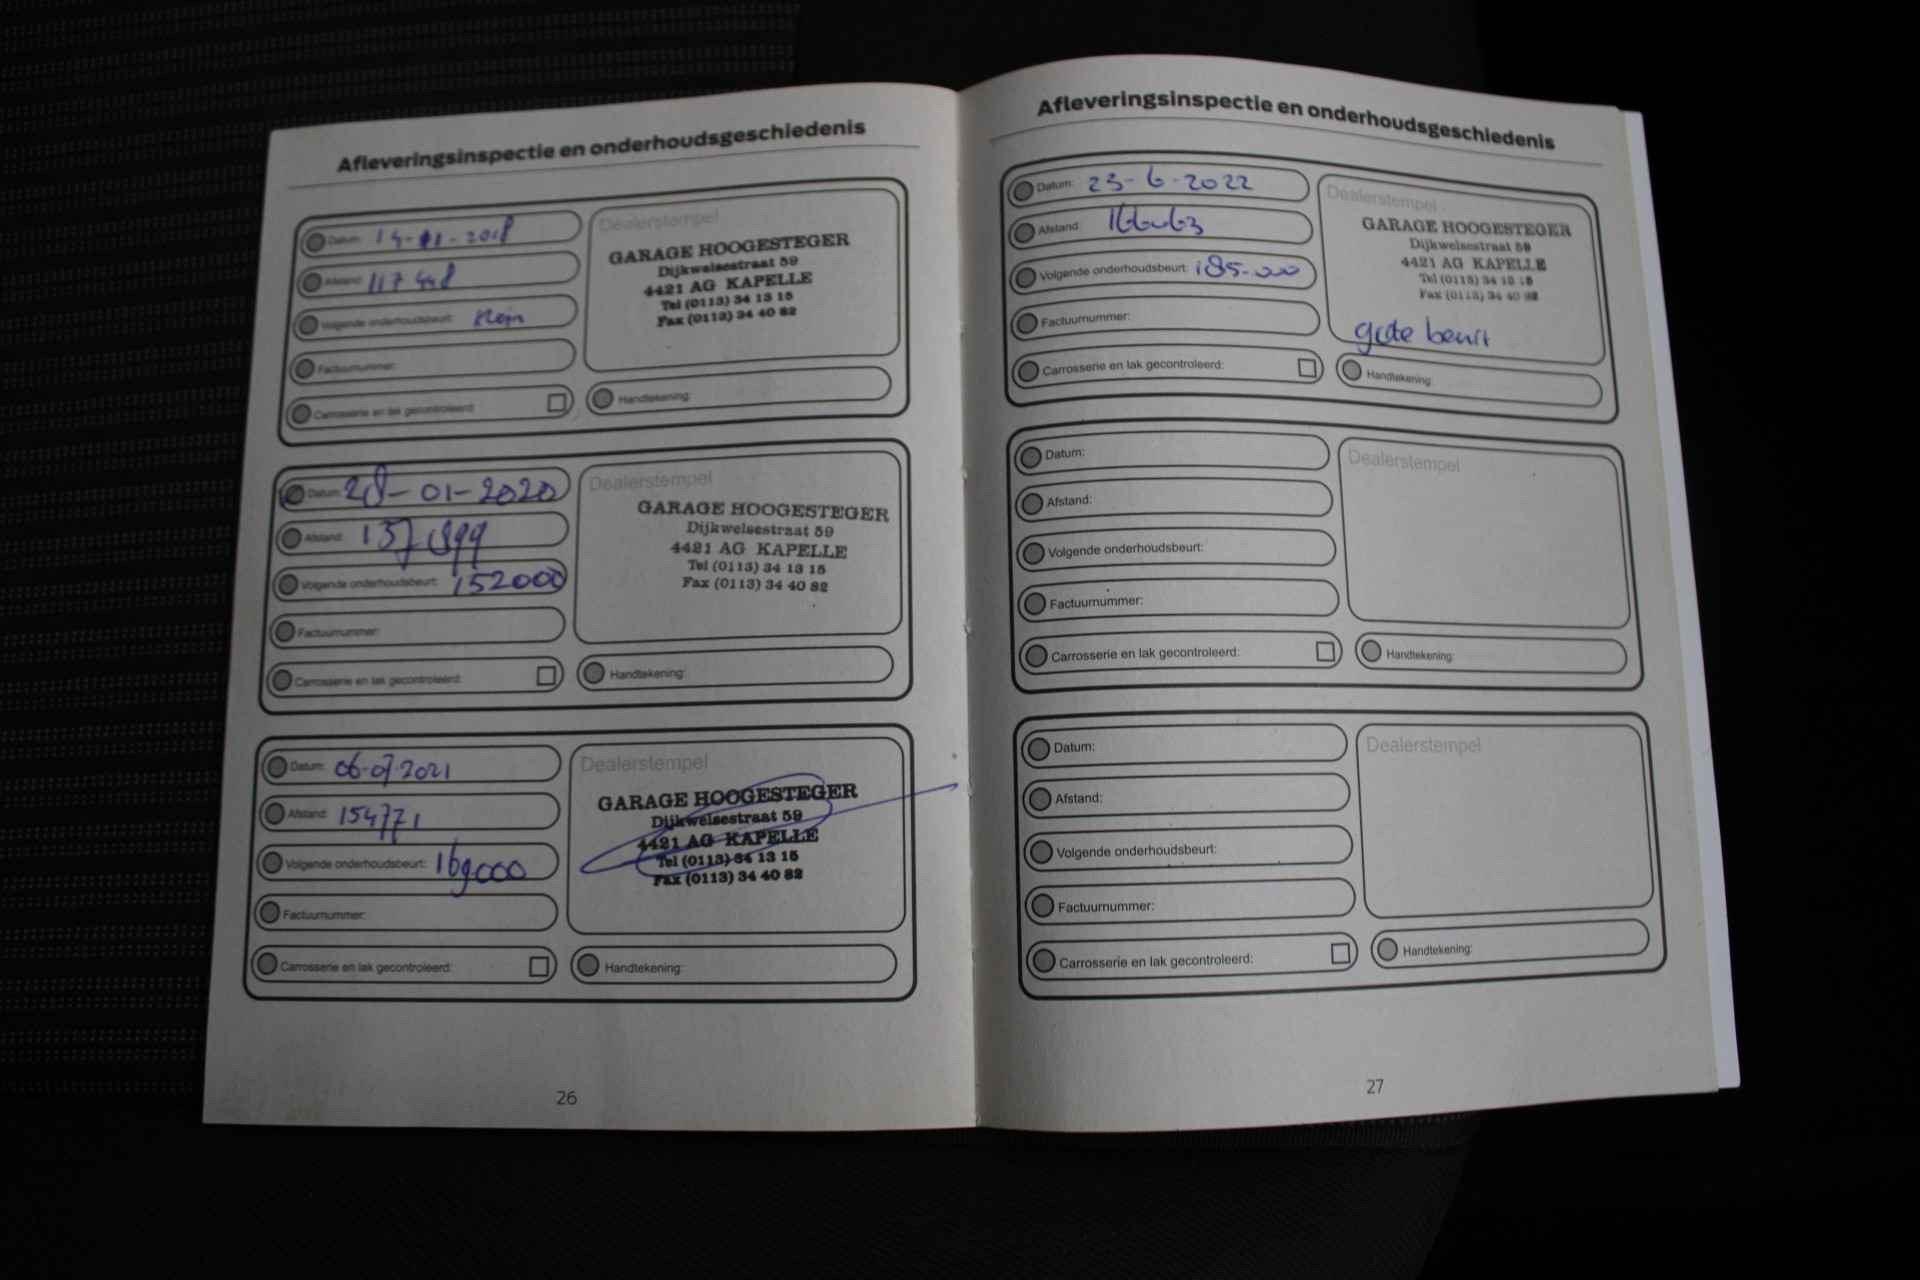 Afleveringsinspectie en onderhoudsgeschiedenis
Datum: 14-11-2018
Afstand: 117 448
Volgende onderhoudsbeurt: klein
Factuurnummer:
Carrosserie en lak gecontroleerd:
Dealerstempel
GARAGE HOOGESTEGER
Dijkwelsestraat 59
4421 AG KAPELLE
Tel (0113) 34 13 15
Fax (0113) 34 40 82
Handtekening:
Datum: 28-01-2020
Afstand: 137.899
Volgende onderhoudsbeurt: 152000
Factuurnummer:
Carrosserie en lak gecontroleerd:
Dealerstempel
GARAGE HOOGESTEGER
Dijkwelsestraat 59
4421 AG KAPELLE
Tel (0113) 34 13 15
Fax (0113) 34 40 82
Handtekening:
Datum: 06-07-2021
Afstand: 154771
Volgende onderhoudsbeurt: 169000
Factuurnummer:
Carrosserie en lak gecontroleerd:
Dealerstempel
GARAGE HOOGESTEGER
Dijkwelsestraat 59
4421 AG KAPELLE
Tel (0113) 34 13 15
Fax (0113) 34 40 82
Handtekening:
26
Afleveringsinspectie en onderhoudsgeschiedenis
Datum: 23-6-2022
Afstand:
Volgende onderhoudsbeurt: 185.000
Factuurnummer:
Carrosserie en lak gecontroleerd:
Dealerstempel
GARAGE HOOGESTEGER
Dijkwelsestraat 59
4421 AG KAPELLE
Tel (0113) 34 13 15
Fax (0113) 34 40 82
grote beurt
Handtekening:
Datum:
Afstand:
Volgende onderhoudsbeurt:
Factuurnummer:
Carrosserie en lak gecontroleerd:
Dealerstempel
Handtekening:
Datum:
Afstand:
Volgende onderhoudsbeurt:
Factuurnummer:
Carrosserie en lak gecontroleerd:
Dealerstempel
Handtekening:
27